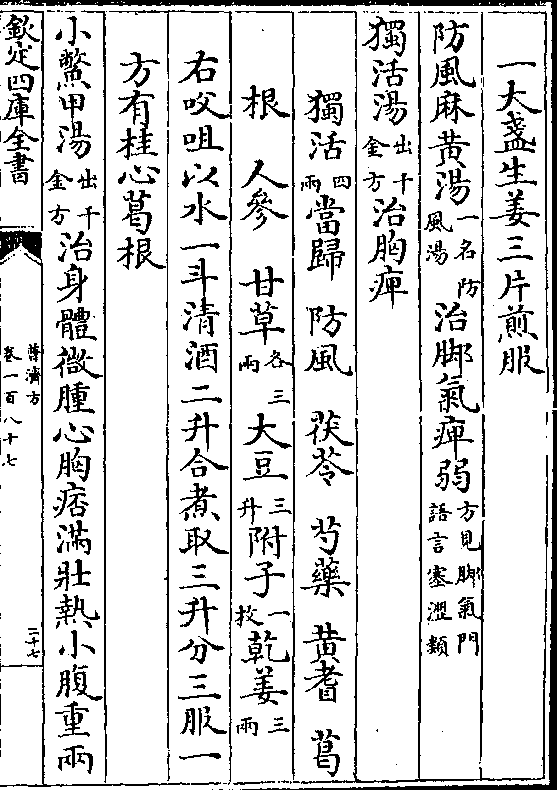 一大盞生姜三片煎服
防風麻黄湯一名防風湯治脚氣痺弱方見脚氣門語言塞澀類
獨活湯出千金方治胸痺
獨活四兩當歸 防風 茯苓 芍藥 黄耆 葛
根 人參 甘草各三兩大豆三升附子一枚乾姜三兩
右㕮咀以水一斗清酒二升合煮取三升分三服一
方有桂心葛根
小鱉甲湯出千金方治身體微腫心胸痞滿壯熱小腹重兩
欽定四庫全書
普濟方
卷一百八十七
三十七